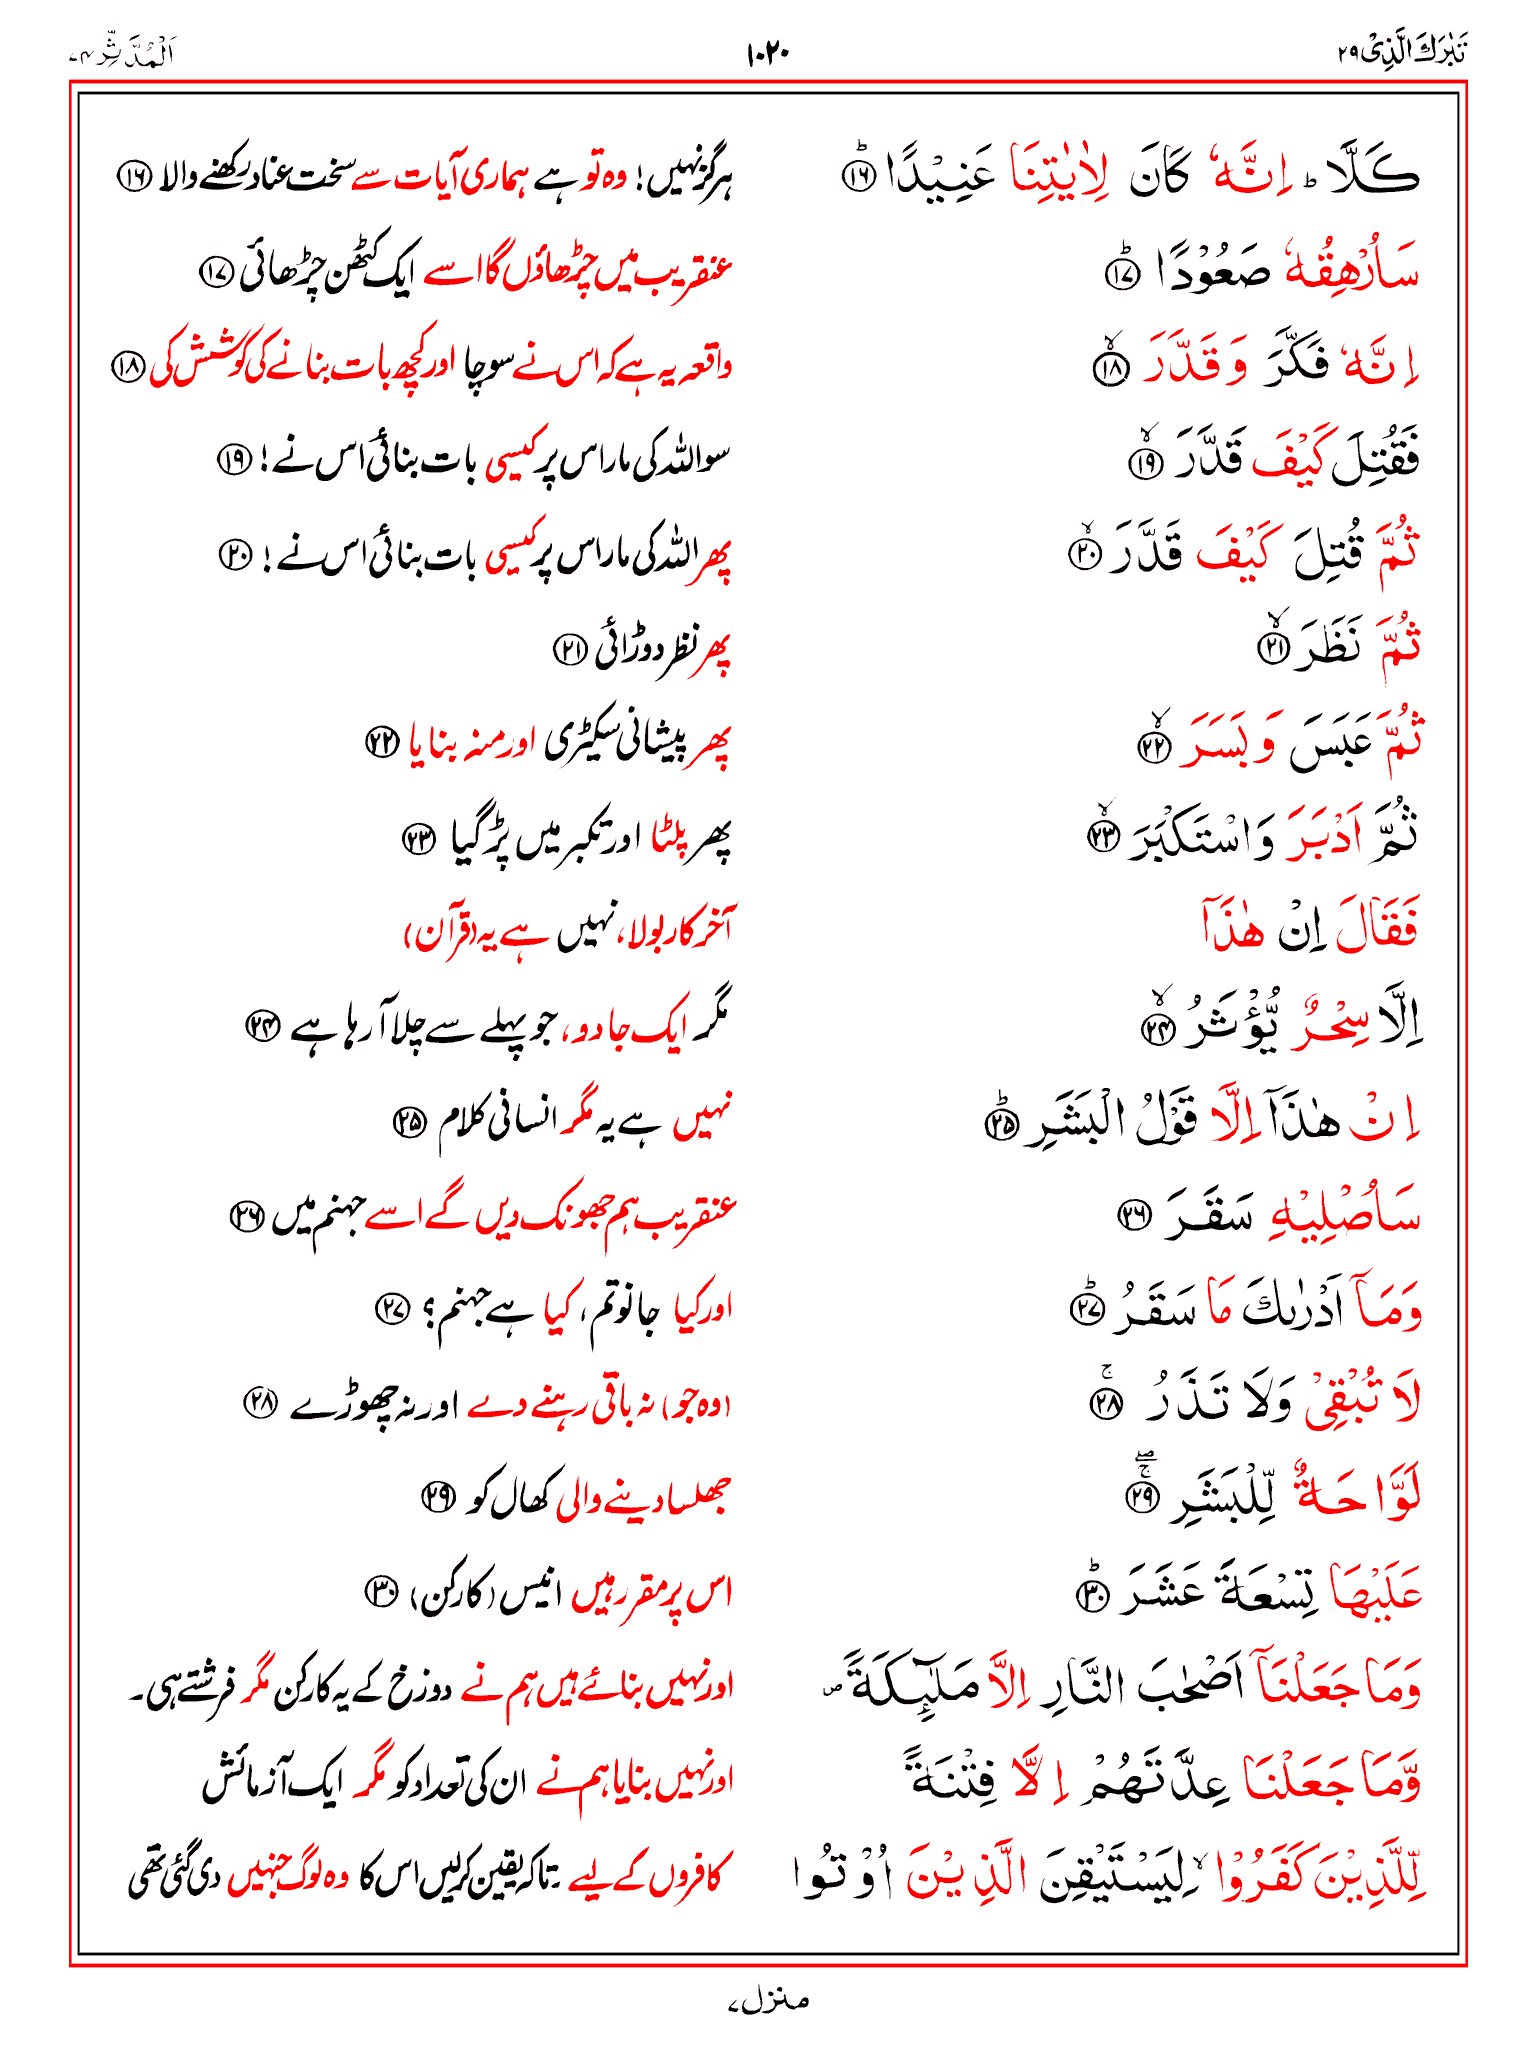 تَبٰرَكَ الَّذِىْ ٢٩ ١٠٢٠ اَلْمُدَّثِّر ٧٤
كَلَّا ؕ اِنَّهٗ كَانَ لِاٰيٰتِنَا عَنِيْدًا ؕ ١٦ ہرگز نہیں! وہ تو ہے ہماری آیات سے سخت عناد رکھنے والا ١٦
سَاُرْهِقُهٗ صَعُوْدًا ؕ ١٧ عنقریب میں چڑھاؤں گا اسے ایک کٹھن چڑھائی ١٧
اِنَّهٗ فَكَّرَ وَ قَدَّرَ ۙ ١٨ واقعہ یہ ہے کہ اس نے سوچا اور کچھ بات بنانے کی کوشش کی ١٨
فَقُتِلَ كَيْفَ قَدَّرَ ۙ ١٩ سو اللہ کی مار اس پر کیسی بات بنائی اس نے! ١٩
ثُمَّ قُتِلَ كَيْفَ قَدَّرَ ۙ ٢٠ پھر اللہ کی مار اس پر کیسی بات بنائی اس نے! ٢٠
ثُمَّ نَظَرَ ۙ ٢١ پھر نظر دوڑائی ٢١
ثُمَّ عَبَسَ وَ بَسَرَ ۙ ٢٢ پھر پیشانی سکیڑی اور منہ بنایا ٢٢
ثُمَّ اَدْبَرَ وَ اسْتَكْبَرَ ۙ ٢٣ پھر پلٹا اور تکبر میں پڑ گیا ٢٣
فَقَالَ اِنْ هٰذَاۤ آخر کار بولا، نہیں ہے یہ (قرآن)
اِلَّا سِحْرٌ يُّؤْثَرُ ۙ ٢٤ مگر ایک جادو، جو پہلے سے چلا آ رہا ہے ٢٤
اِنْ هٰذَاۤ اِلَّا قَوْلُ الْبَشَرِ ؕ ٢٥ نہیں ہے یہ مگر انسانی کلام ٢٥
سَاُصْلِيْهِ سَقَرَ ٢٦ عنقریب ہم جھونک دیں گے اسے جہنم میں ٢٦
وَ مَاۤ اَدْرٰىكَ مَا سَقَرُ ؕ ٢٧ اور کیا جانو تم، کیا ہے جہنم؟ ٢٧
لَا تُبْقِىْ وَلَا تَذَرُ ۚ ٢٨ (وہ جو) نہ باقی رہنے دے اور نہ چھوڑے ٢٨
لَوَّاحَةٌ لِّلْبَشَرِ ۖۚ ٢٩ جھلسا دینے والی کھال کو ٢٩
عَلَيْهَا تِسْعَةَ عَشَرَ ؕ ٣٠ اس پر مقرر ہیں انیس (کارکن) ٣٠
وَ مَا جَعَلْنَاۤ اَصْحٰبَ النَّارِ اِلَّا مَلٰٓٮِٕكَةً ص اور نہیں بنائے ہیں ہم نے دوزخ کے یہ کارکن مگر فرشتے ہی۔
وَّ مَا جَعَلْنَا عِدَّتَهُمْ اِلَّا فِتْنَةً اور نہیں بنایا ہم نے ان کی تعداد کو مگر ایک آزمائش
لِّلَّذِيْنَ كَفَرُوْا ۙ لِيَسْتَيْقِنَ الَّذِيْنَ اُوْتُوا کافروں کے لیے۔ تاکہ یقین کرلیں اس کا وہ لوگ جنہیں دی گئی تھی
منزل ٧